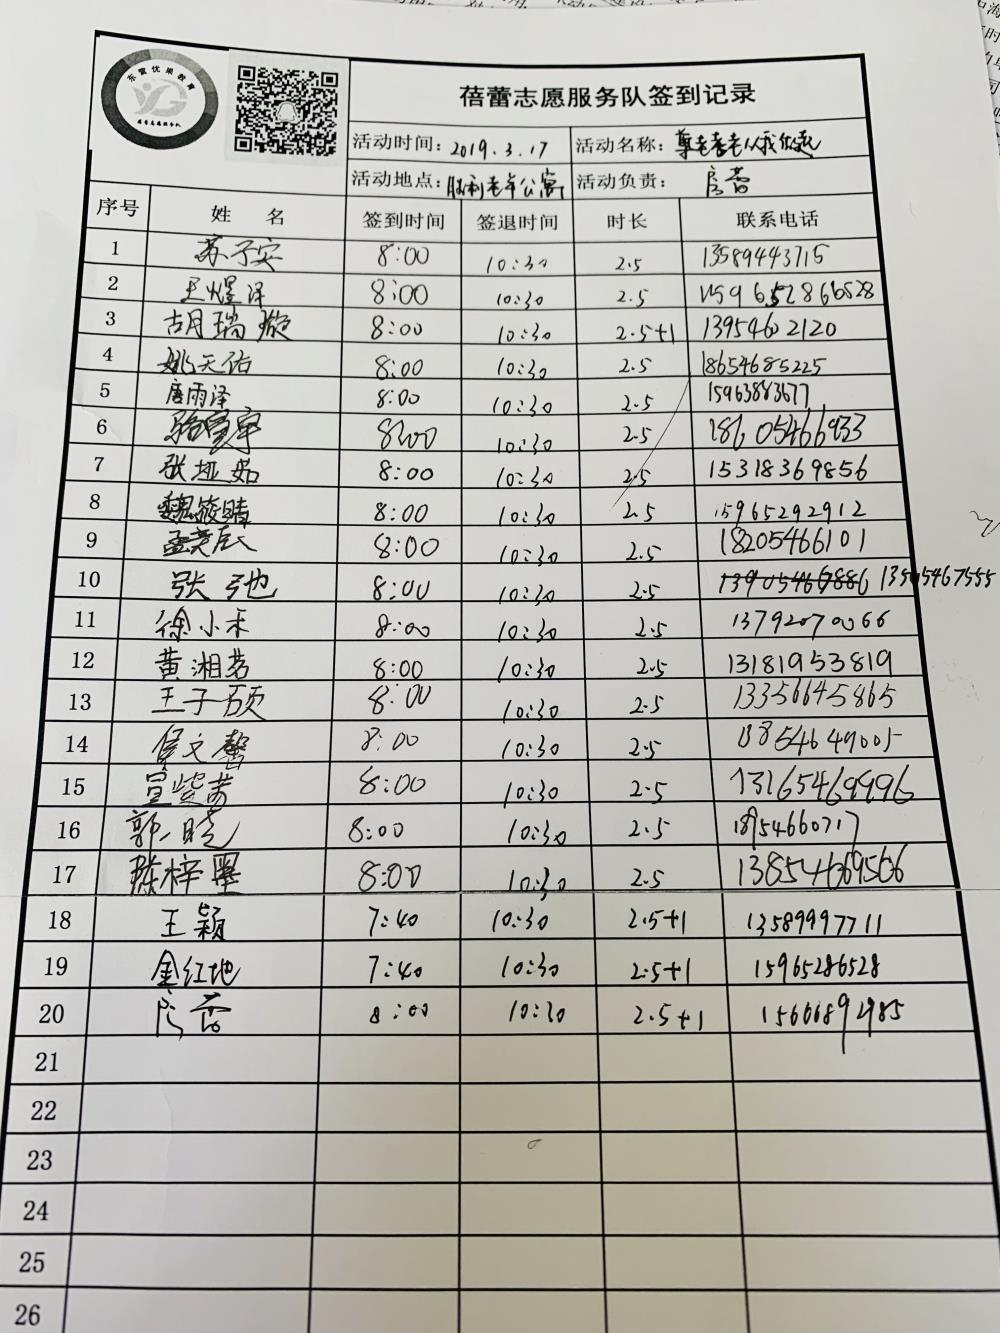 东营优巢教育
蓓蕾志愿服务队签到记录
活动时间: 2019.3.17 活动名称: 尊老敬老从我做起
活动地点: 胜利老年公寓 活动负责: 房蕾
序号 姓名 签到时间 签退时间 时长 联系电话
1 苏子安 8:00 10:30 2.5 13589443715
2 王煜泽 8:00 10:30 2.5
3 胡瑞璇 8:00 10:30 2.5+1 13954602120
4 姚天佑 8:00 10:30 2.5 18654685225
5 唐雨泽 8:00 10:30 2.5
6 8:00 10:30 2.5 18605466933
7 张垭茹 8:00 10:30 2.5 15318369856
8 魏筱晴 8:00 10:30 2.5 15965292912
9 孟美辰 8:00 10:30 2.5 18205466101
10 张弛 8:00 10:30 2.5 13905466886 13505467555
11 徐小禾 8:00 10:30 2.5 13792070066
12 黄湘茗 8:00 10:30 2.5 13181953819
13 王子硕 8:00 10:30 2.5 13356645865
14 侯文馨 8:00 10:30 2.5 18854649005
15 宣紫茜 8:00 10:30 2.5 13165469996
16 郭晓 8:00 10:30 2.5 18954660717
17 陈梓墨 8:00 10:30 2.5 13854669566
18 王颖 7:40 10:30 2.5+1 13589997711
19 金红地 7:40 10:30 2.5+1 15965286528
20 房蕾 8:00 10:30 2.5+1
21
22
23
24
25
26